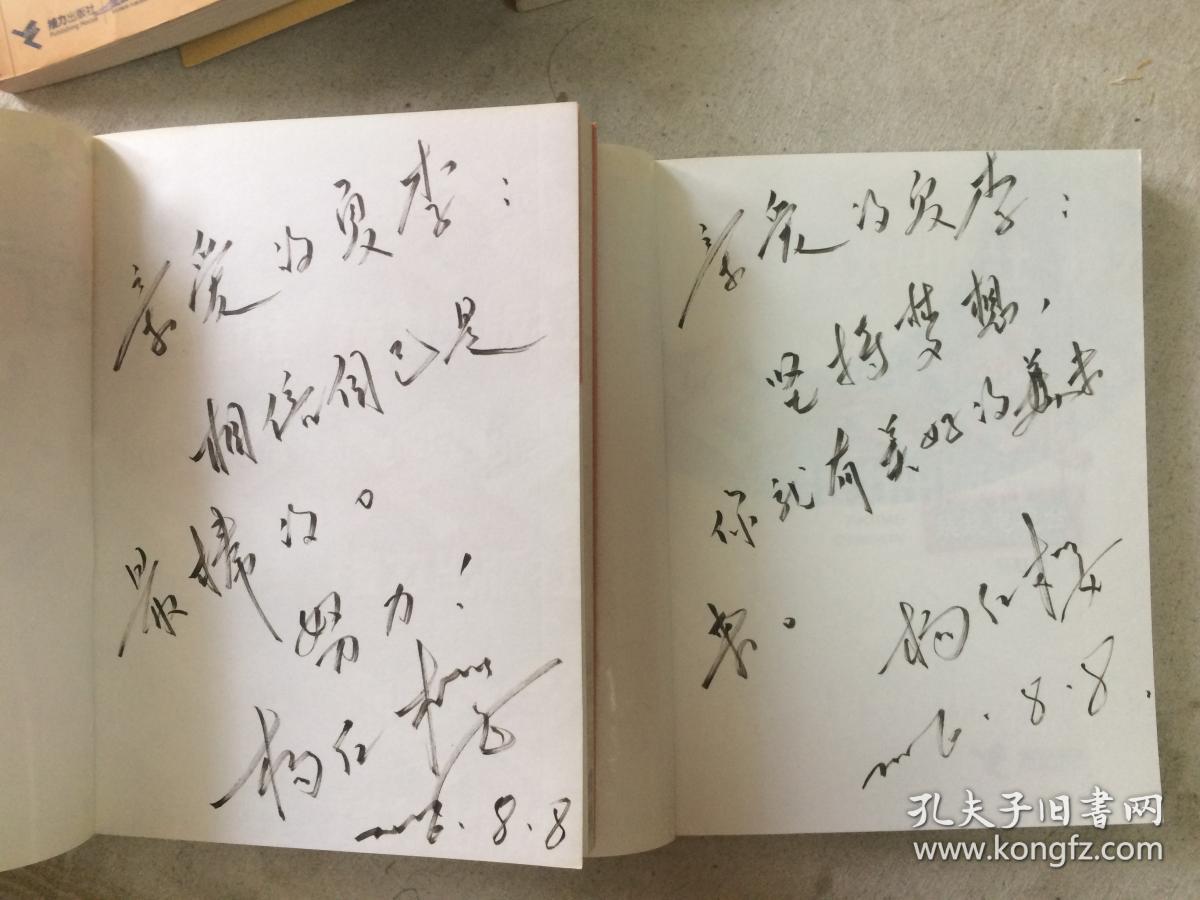 接力出版社
Publishing House
亲爱的夏李：
相信自己是
最棒的。
努力！
杨红樱
8.8
亲爱的夏李：
坚持梦想，
你就有美好的未
来。
杨红樱
8.8.
孔夫子旧书网
www.kongfz.com